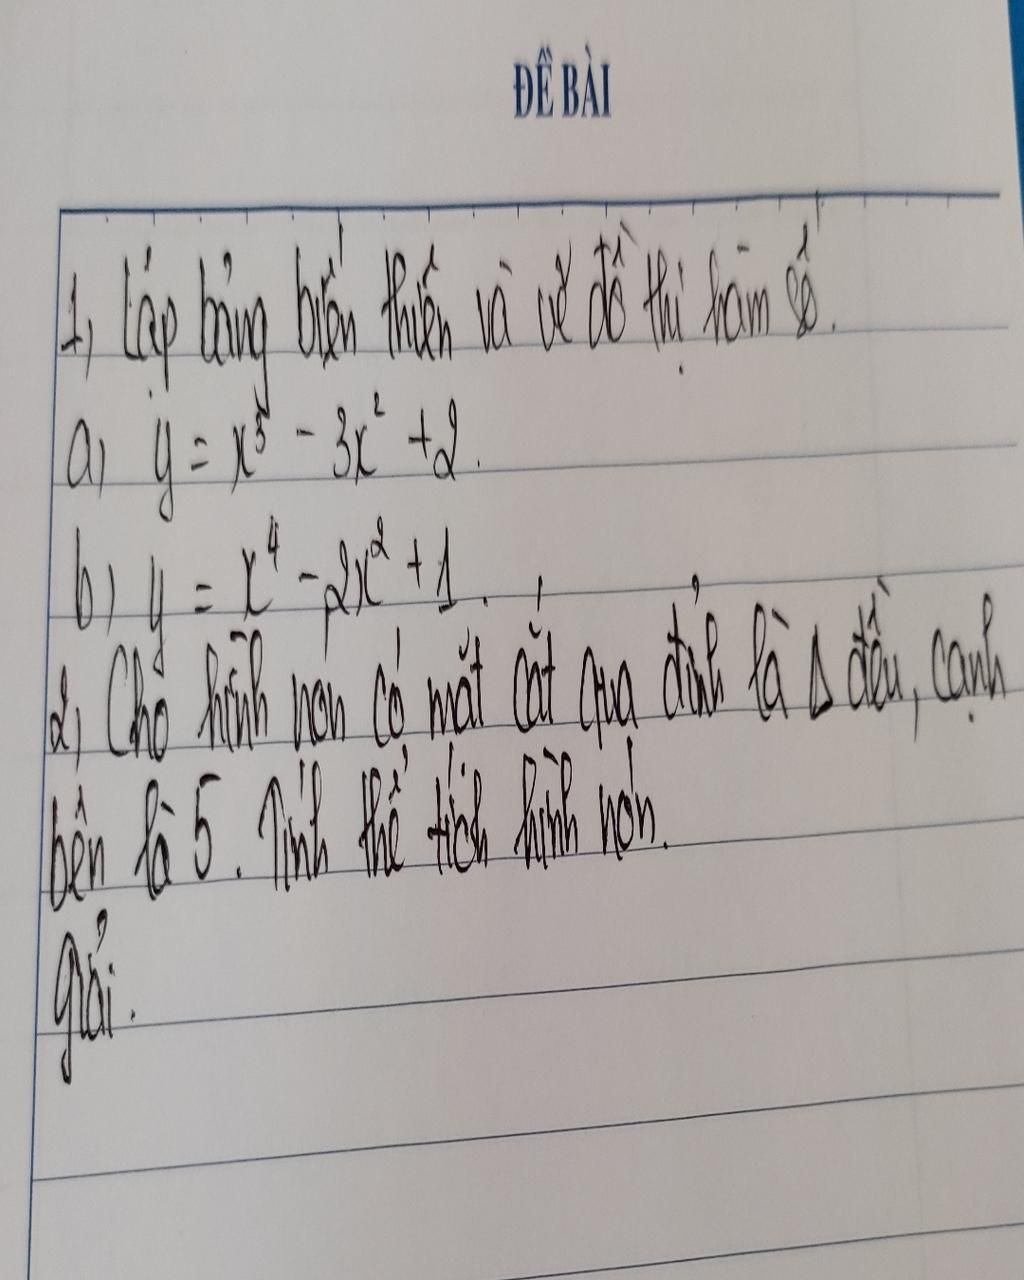 ĐỀ BÀI
1, Lập bảng biến thiên và vẽ đồ thị hàm số.
a, y = x³ - 3x² + 2.
b, y = x⁴ - 2x² + 1.
2, Cho hình nón có mặt cắt qua đỉnh là Δ đều, cạnh
bên là 5. Tính thể tích hình nón.
giải.